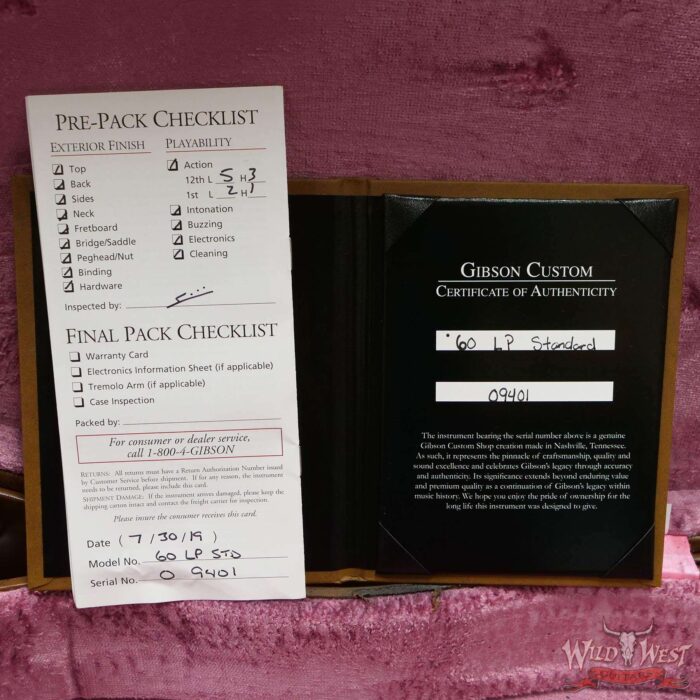 PRE-PACK CHECKLIST
EXTERIOR FINISH
Top
Back
Sides
Neck
Fretboard
Bridge/Saddle
Peghead/Nut
Binding
Hardware
PLAYABILITY
Action
12th L 5 H 3
1st L 2 H 1
Intonation
Buzzing
Electronics
Cleaning
Inspected by:
FINAL PACK CHECKLIST
Warranty Card
Electronics Information Sheet (if applicable)
Tremolo Arm (if applicable)
Case Inspection
Packed by:
For consumer or dealer service,
call 1-800-4-GIBSON
RETURNS: All returns must have a Return Authorization Number issued
by Customer Service before shipment. If for any reason, the instrument
needs to be returned, please include this card.
SHIPMENT DAMAGE: If the instrument arrives damaged, please keep the
shipping carton intact and contact the freight carrier for inspection.
Please insure the consumer receives this card.
Date (7/30/19)
Model No. 60 LP STD
Serial No. 0 9401
GIBSON CUSTOM
CERTIFICATE OF AUTHENTICITY
'60 LP Standard
09401
The instrument bearing the serial number above is a genuine
Gibson Custom Shop creation made in Nashville, Tennessee.
As such, it represents the pinnacle of craftsmanship, quality and
sound excellence and celebrates Gibson's legacy through accuracy
and authenticity. Its significance extends beyond enduring value
and premium quality as a continuation of Gibson's legacy within
music history. We hope you enjoy the pride of ownership for the
long life this instrument was designed to give.
WILD WEST
GUITARS